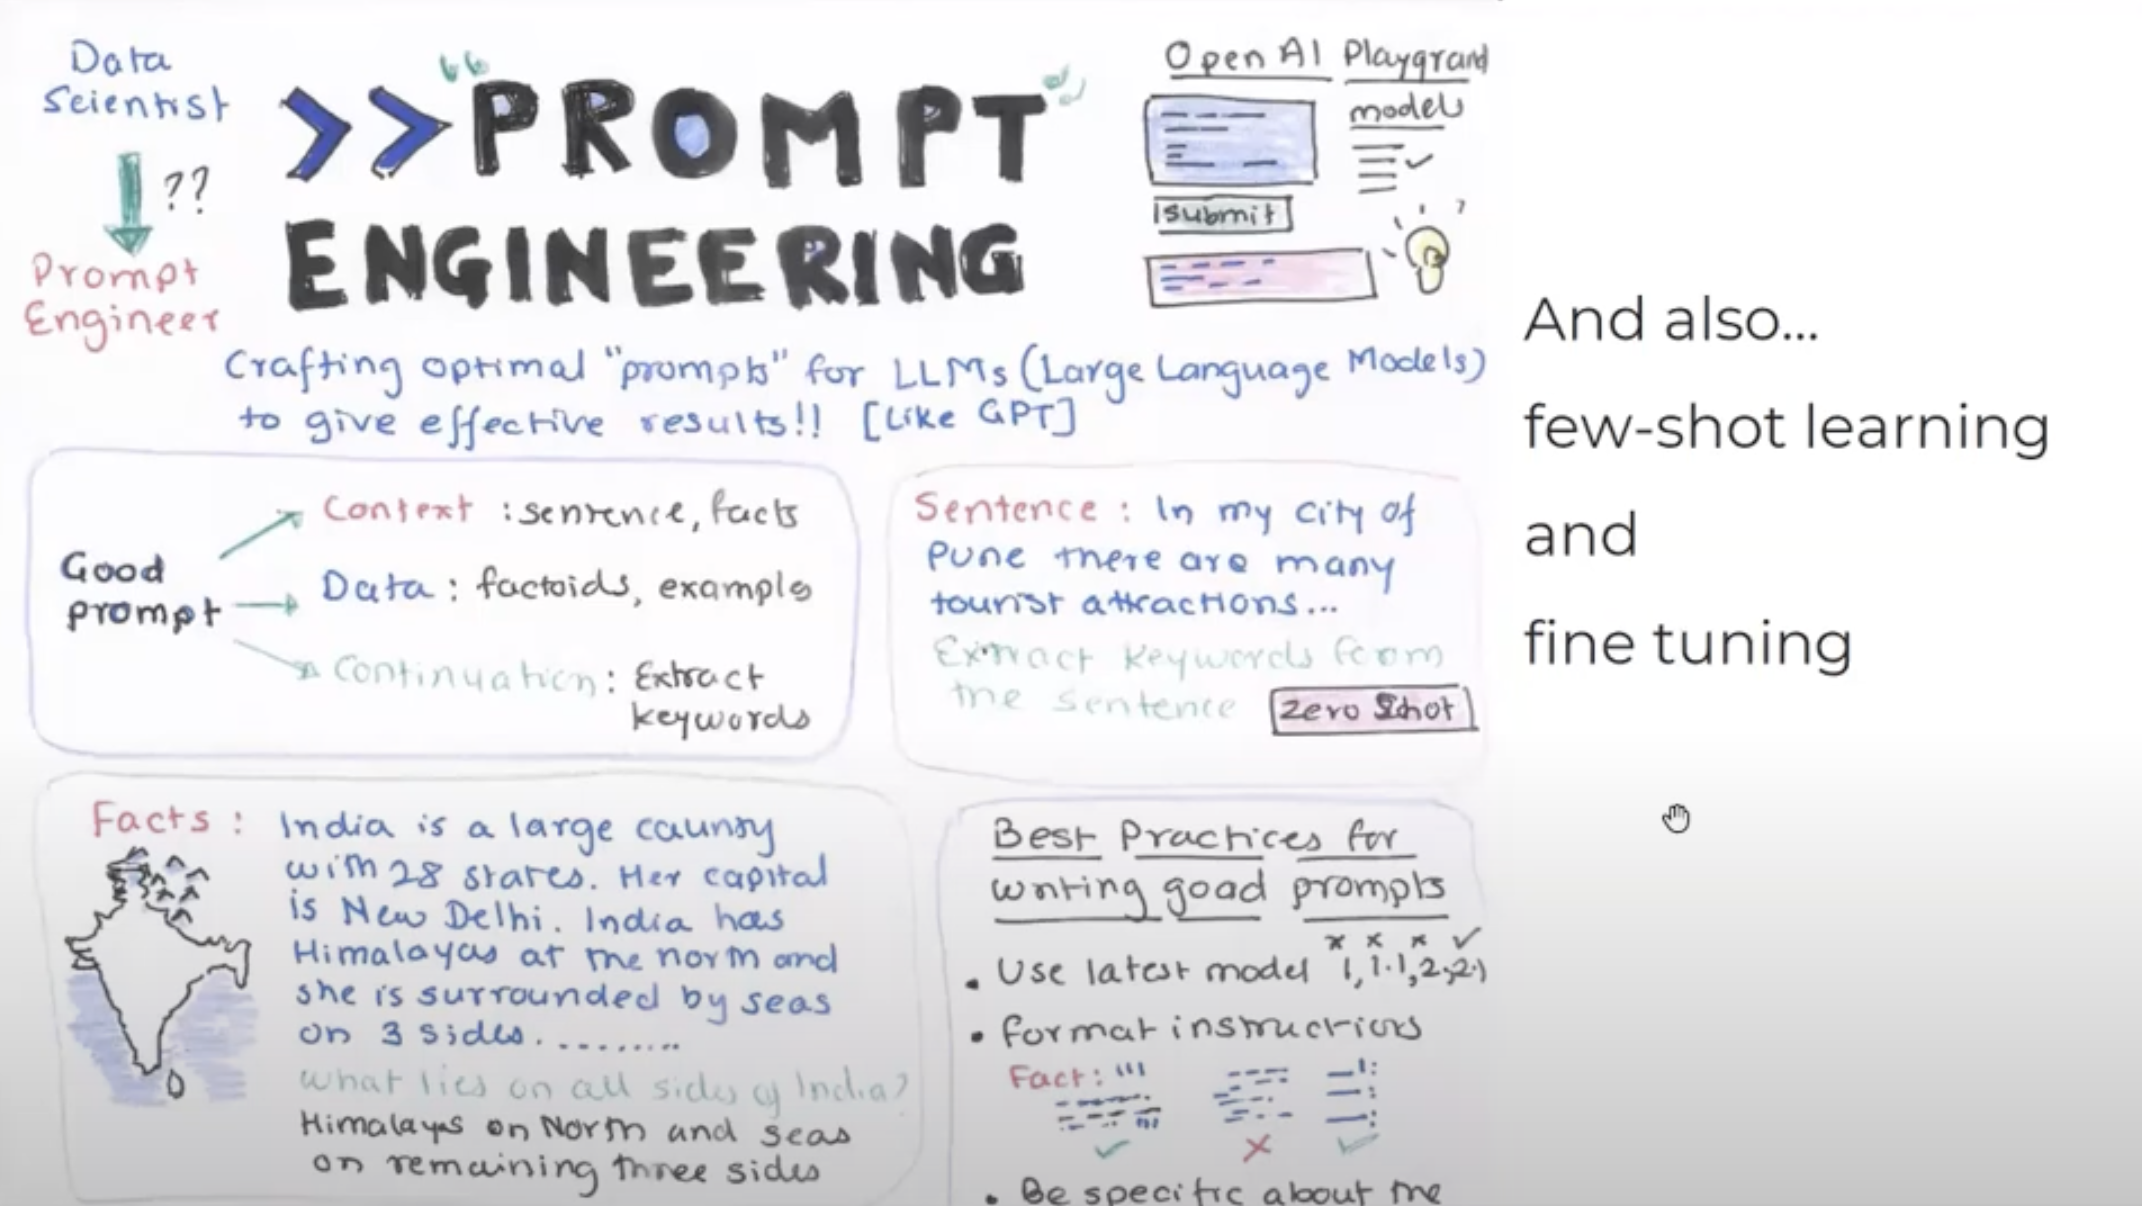 Data
Scientist
??
Prompt
Engineer
>> "PROMPT"
ENGINEERING
Open AI Playground
models
submit
Crafting optimal "prompts" for LLMs (Large Language Models)
to give effective results!! [Like GPT]
Good
prompt
Context : sentence, facts
Data : factoids, examples
Continuation : Extract
keywords
Sentence : In my city of
Pune there are many
tourist attractions...
Extract keywords from
the sentence
Zero Shot
Facts : India is a large country
with 28 states. Her capital
is New Delhi. India has
Himalayas at the north and
she is surrounded by seas
on 3 sides.........
What lies on all sides of India?
Himalayas on North and seas
on remaining three sides
Best Practices for
writing good prompts
• Use latest model 1, 1.1, 2, 2.1
• format instructions
Fact: '''
• Be specific about the
And also...
few-shot learning
and
fine tuning